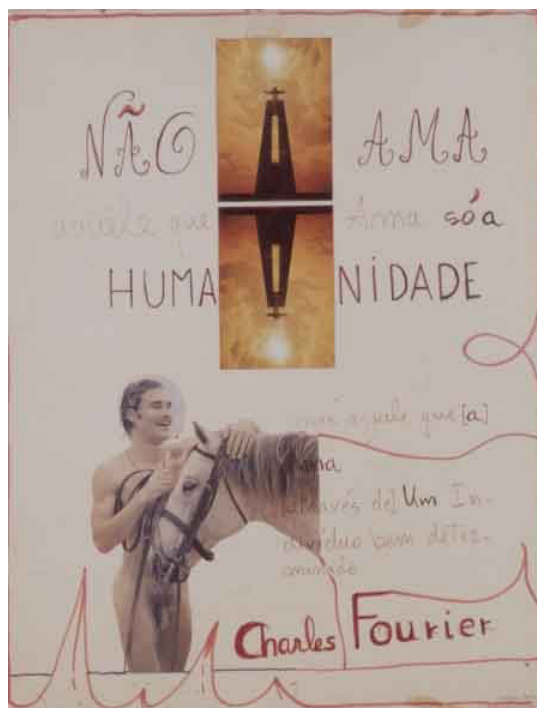 NÃO AMA
aquele que Ama só a
HUMANIDADE
mas aquele que [a]
Ama
através de] Um In-
divíduo bem deter-
minado
Charles Fourier